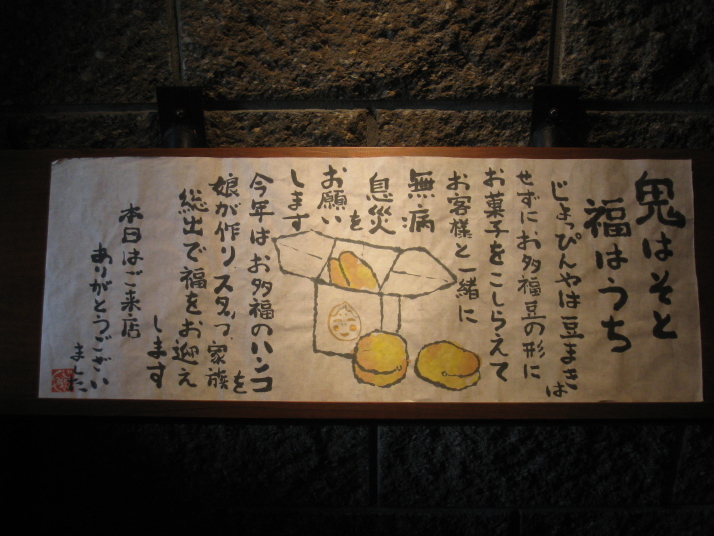 鬼はそと
福はうち
じょっぴんやは豆まきは
せずにお多福豆の形に
お菓子をこしらえて
お客様と一緒に
無病
息災を
お願い
します
今年はお多福のハンコを
娘が作りスタッフ家族
総出で福をお迎え
します
本日はご来店
ありがとうござい
ました